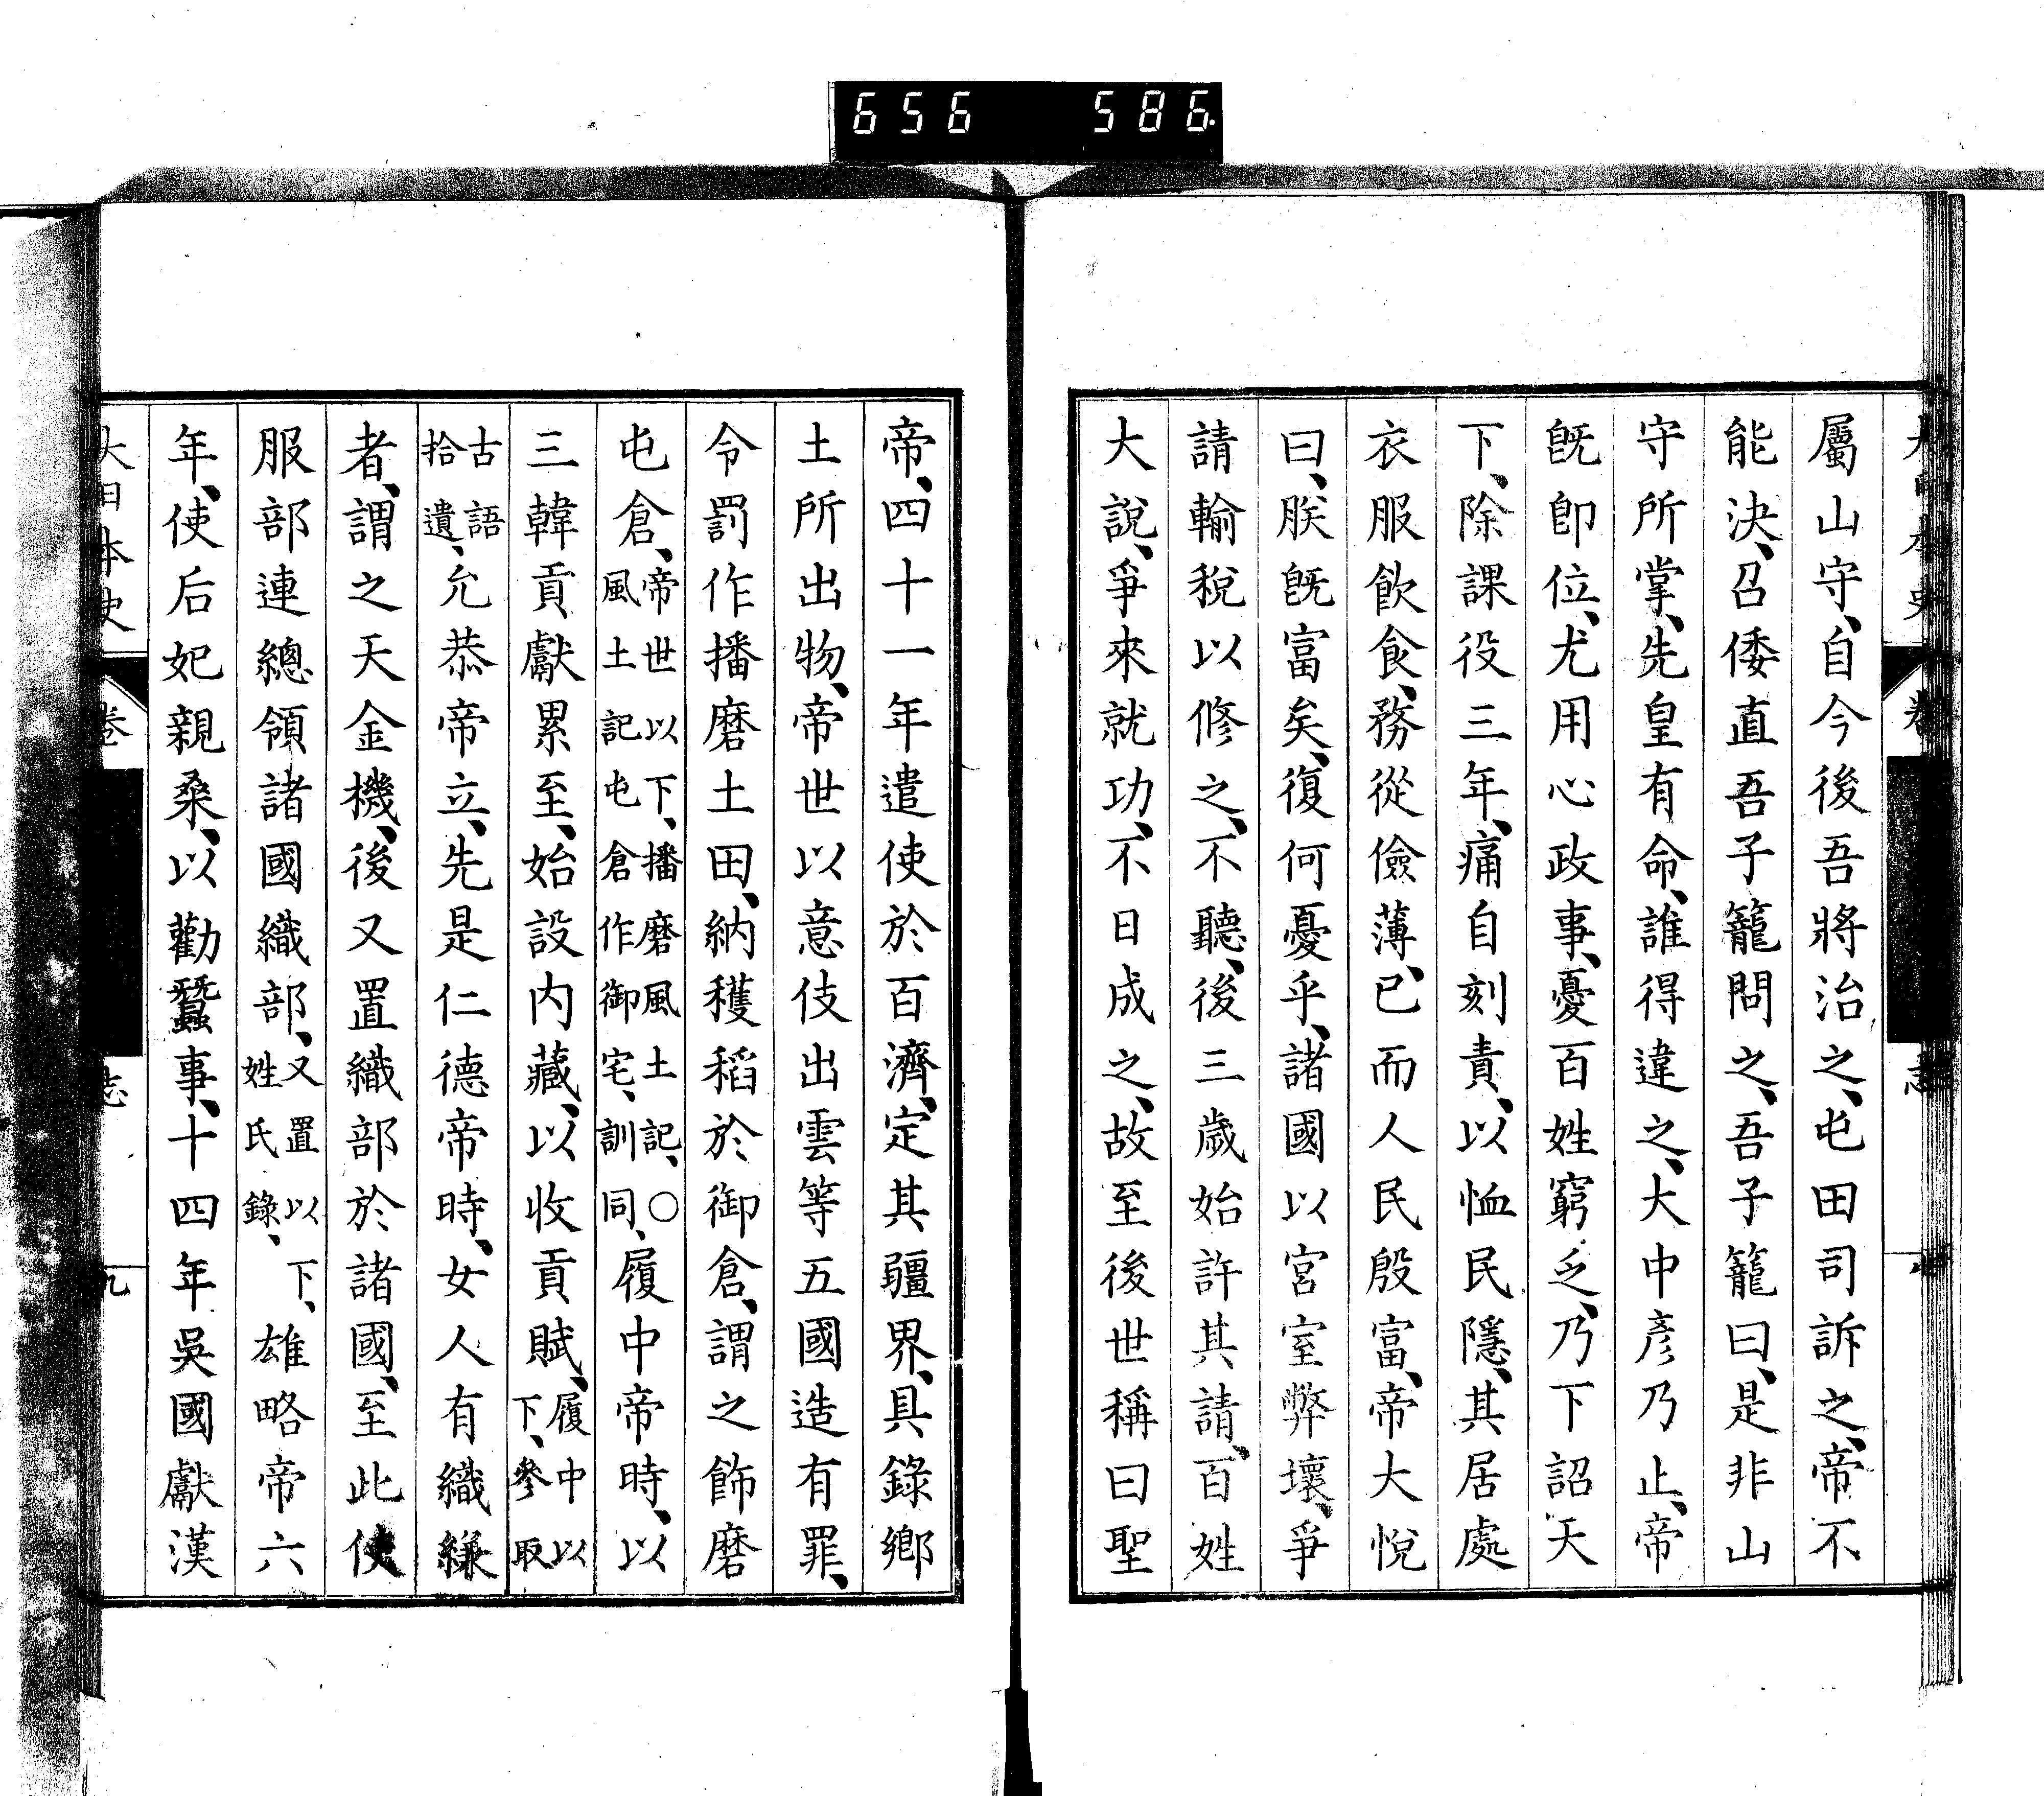 656 586
屬山守、自今後吾將治之、屯田司訴之、帝不
能決、召倭直吾子籠問之、吾子籠曰、是非山
守所掌、先皇有命、誰得違之、大中彥乃止、帝
既卽位、尤用心政事、憂百姓窮乏、乃下詔天
下、除課役三年、痛自刻責、以恤民隱、其居處
衣服飮食、務從儉薄、已而人民殷富、帝大悅
曰、朕既富矣、復何憂乎、諸國以宮室弊壞、爭
請輸稅以修之、不聽、後三歲始許其請、百姓
大說、爭來就功、不日成之、故至後世稱曰聖
帝、四十一年遣使於百濟、定其疆界、具錄鄉
土所出物、帝世以意伎出雲等五國造有罪、
令罰作播磨土田、納穫稻於御倉、謂之飾磨
屯倉、帝世以下、播磨風土記、〇風土記屯倉作御宅、訓同、履中帝時、以
三韓貢獻累至、始設內藏、以收貢賦、履中以下、參取
古語拾遺、允恭帝立、先是仁德帝時、女人有織縑
者、謂之天金機、後又置織部於諸國、至此使
服部連總領諸國織部、又置以下、姓氏錄、雄略帝六
年、使后妃親桑、以勸蠶事、十四年吳國獻漢
大日本史 卷 志 九